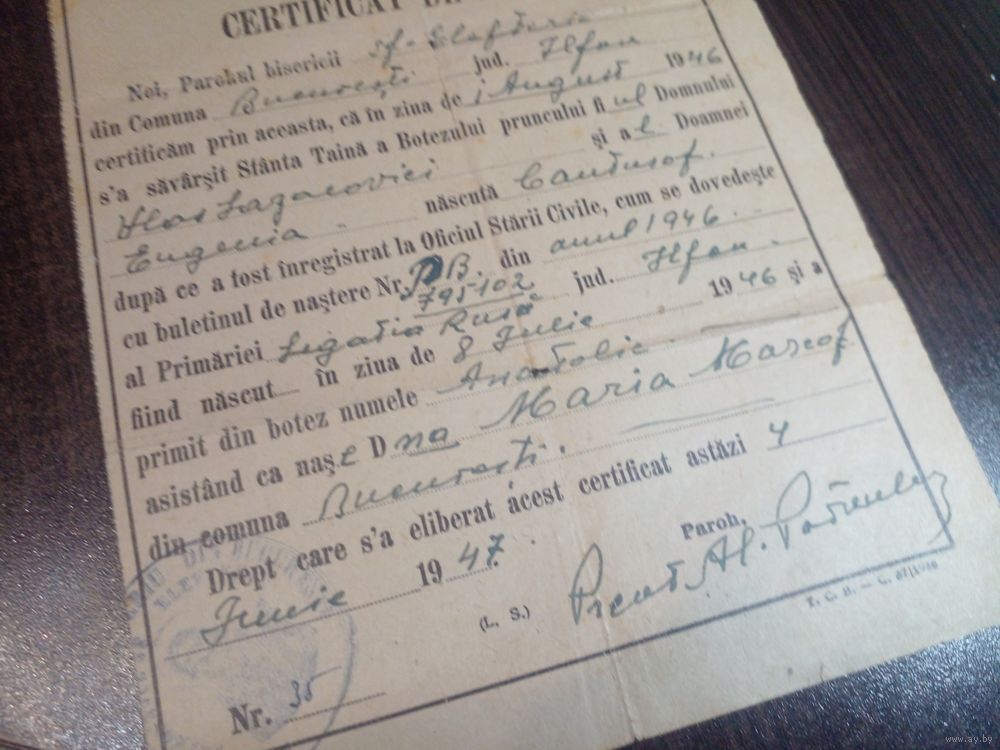 CERTIFICAT DE
Noi, Parohul bisericii Sf. Elefterie
din Comuna București jud. Ilfov
certificăm prin aceasta, că în ziua de 1 August 1946
s'a săvârşit Sfânta Taină a Botezului pruncului fiul Domnului
și al Doamnei
Eugenia născută
după ce a fost înregistrat la Oficiul Stării Civile, cum se dovedeşte
cu buletinul de naştere Nr. B. 795102 din anul 1946
al Primăriei Legația Rusă jud. Ilfov
fiind născut în ziua de 8 Iulie 1946 şi a
primit din botez numele Anatolie
asistând ca naşe Dna Maria
din comuna București.
Drept care s'a eliberat acest certificat astăzi 4
Iunie 1947.
Paroh,
Preot Al.
(L. S.)
Nr. 35
www.ay.by